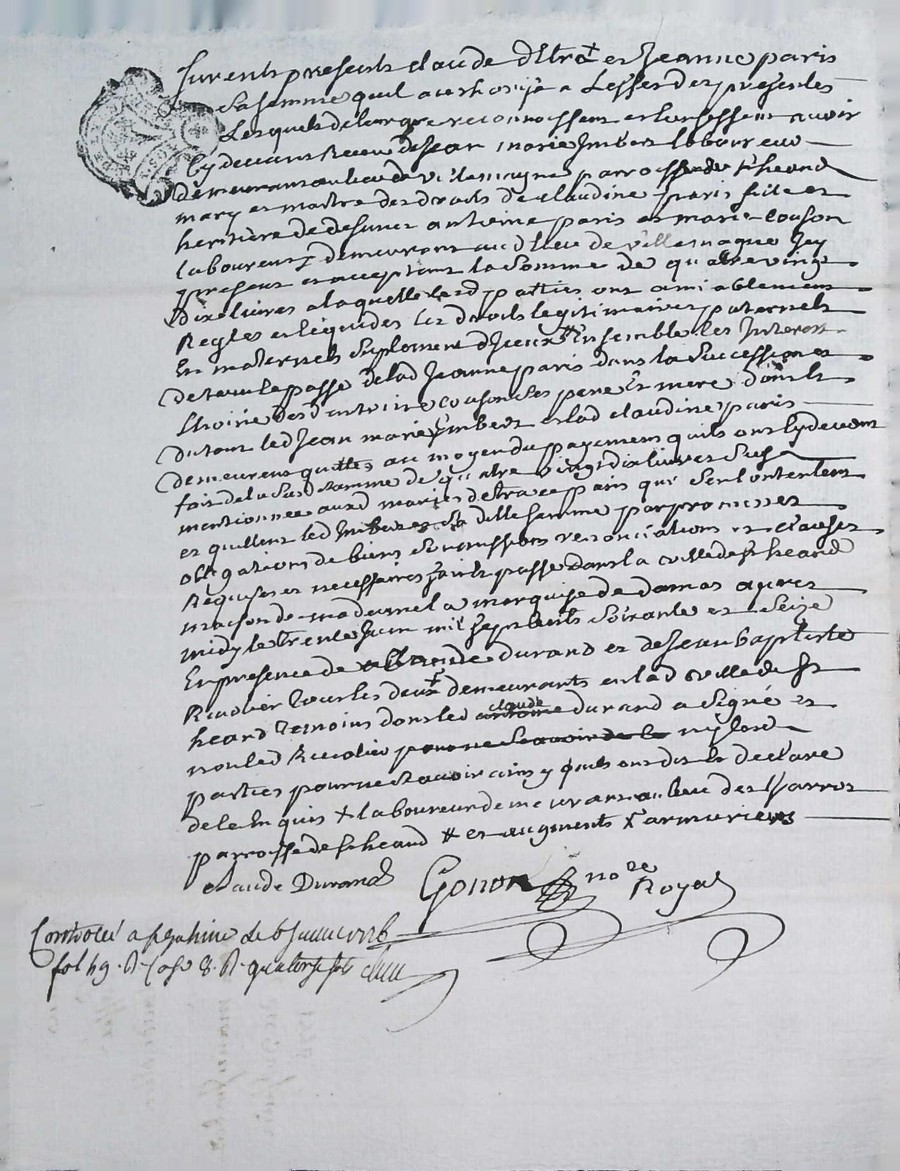 furent presents claude detra + et Jeanne paris
sa femme quil authorise a Leffet des presentes
Lesquels de leur gre reconnoissent et confessent avoir
cy devant Receu de Jean marie Imbert laboureur
demeurant au lieu de villemagne parroisse de st heand
mary et maitre des droits de claudine paris fille et
heritière de defunts antoine paris et marie couson
laboureur demeurant aud lieu de villemagne Icy
present et acceptant la Somme de quatre vingt
dix livres a laquelle lesd parties ont amiablement
Regles et liquides les droits legitimaires paternels
Et maternels Suplement diceux # Ensemble les Interest
de tout le passe de lad Jeanne paris dans la Succession et
hoirie desd antoine couson Ses pere Et mere dont
du tout led Jean marie Imbert et lad claudine paris
demeurent quittes au moyen du payement quils ont cy devant
fait de la Susd Somme de quatre vingt dix livres Sus
mentionnee aux mariés detra et paris qui Sen contentent
et quittent led Imbert et sa ditte femme par promesses
obligations de biens Soumissions renonciations et clauses
Requises et necessaires fait et passe dans la ville de st heand
maison de mademoiselle la marquise de damas apres
midy le trente Juin mil sept cents Soixante et Seize
En presence de claude durand et de Jean baptiste
Rivolier tous les deux + demeurants en lad ville de st
heand temoins dont led claude durand a Signé et
non led Rivolier ny lesd
parties pour ne Scavoir ainsy quils ont dit et declare
de ce Enquis + laboureur demeurant au lieu des
parroisse de st heand # et augments + armuriers
claude Durand Gonon nore Royal
Controlé a st
fol 49 R. Case 8. R. quatorze sols